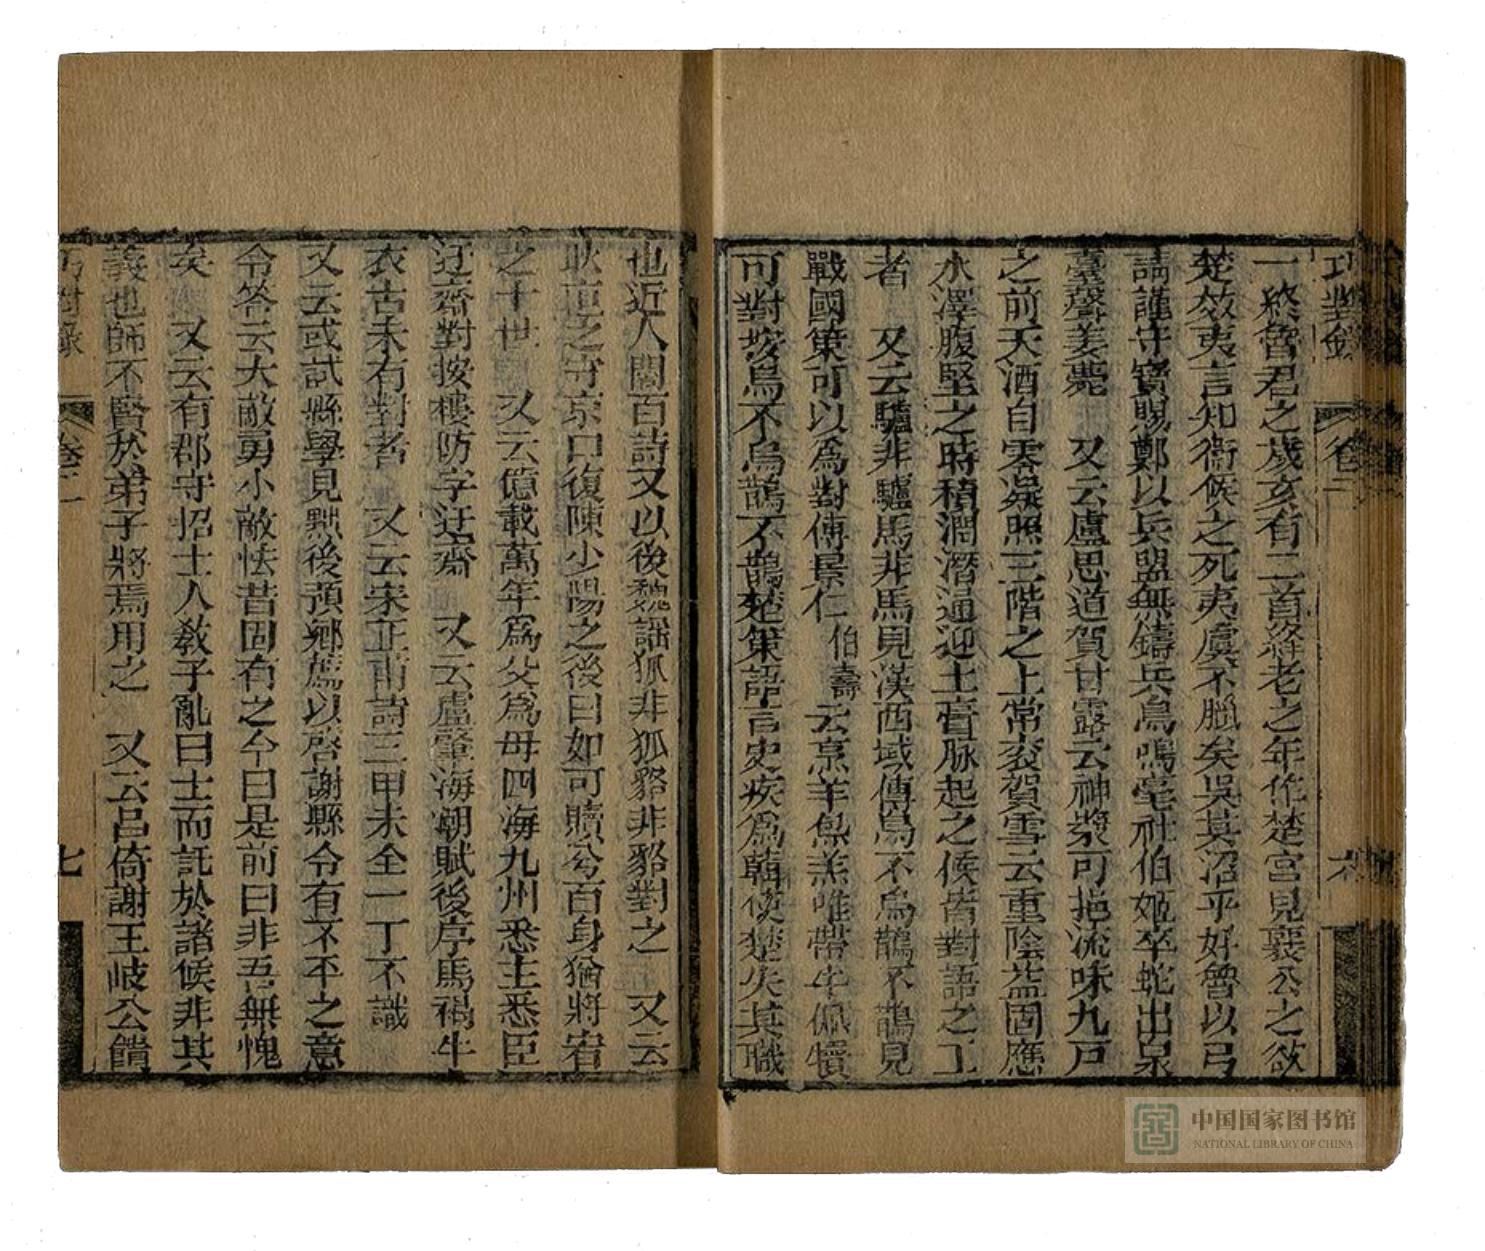 巧對錄 卷二 六
一終魯君之歲亥有二首絳老之年作楚宮見襄公之欲
楚效夷言知衞侯之死夷虞不臘矣吳其沼乎好魯以弓
請謹守寶賜鄭以兵盟無鑄兵鳥鳴亳社伯姬卒蛇出泉
臺聲姜薨 又云盧思道賀甘露云神漿可挹流味九戸
之前天酒自零凝照三階之上常袞賀雪云重陰益固應
水澤腹堅之時積潤潛通迎土膏脉起之候皆對語之工
者 又云驢非驢馬非馬見漢西域傳烏不烏鵲不鵲見
戰國策可以爲對傅景仁伯壽云烹羊炰羔唯帶牛佩犢
可對按烏不烏鵲不鵲楚策語言史疾爲韓使楚失其職
也近人閻百詩又以後魏謡狐非狐貉非貉對之 又云
耿直之守京口復陳少陽之後曰如可贖兮百身猶將宥
之十世 又云億載萬年爲父爲母四海九州悉主悉臣
迂齋對按樓防字迂齋 又云盧肇海潮賦後序馬褐牛
衣古未有對者 又云宋正甫詩三甲未全一丁不識
又云或試縣學見黜後預鄉薦以啓謝縣令有不平之意
令答云大敵勇小敵怯昔固有之今日是前日非吾無愧
矣 又云有郡守招士人敎子亂曰士而託於諸侯非其
義也師不賢於弟子將焉用之 又云呂倚謝王岐公饋
巧對錄 卷二 七
中国国家图书馆
NATIONAL LIBRARY OF CHINA